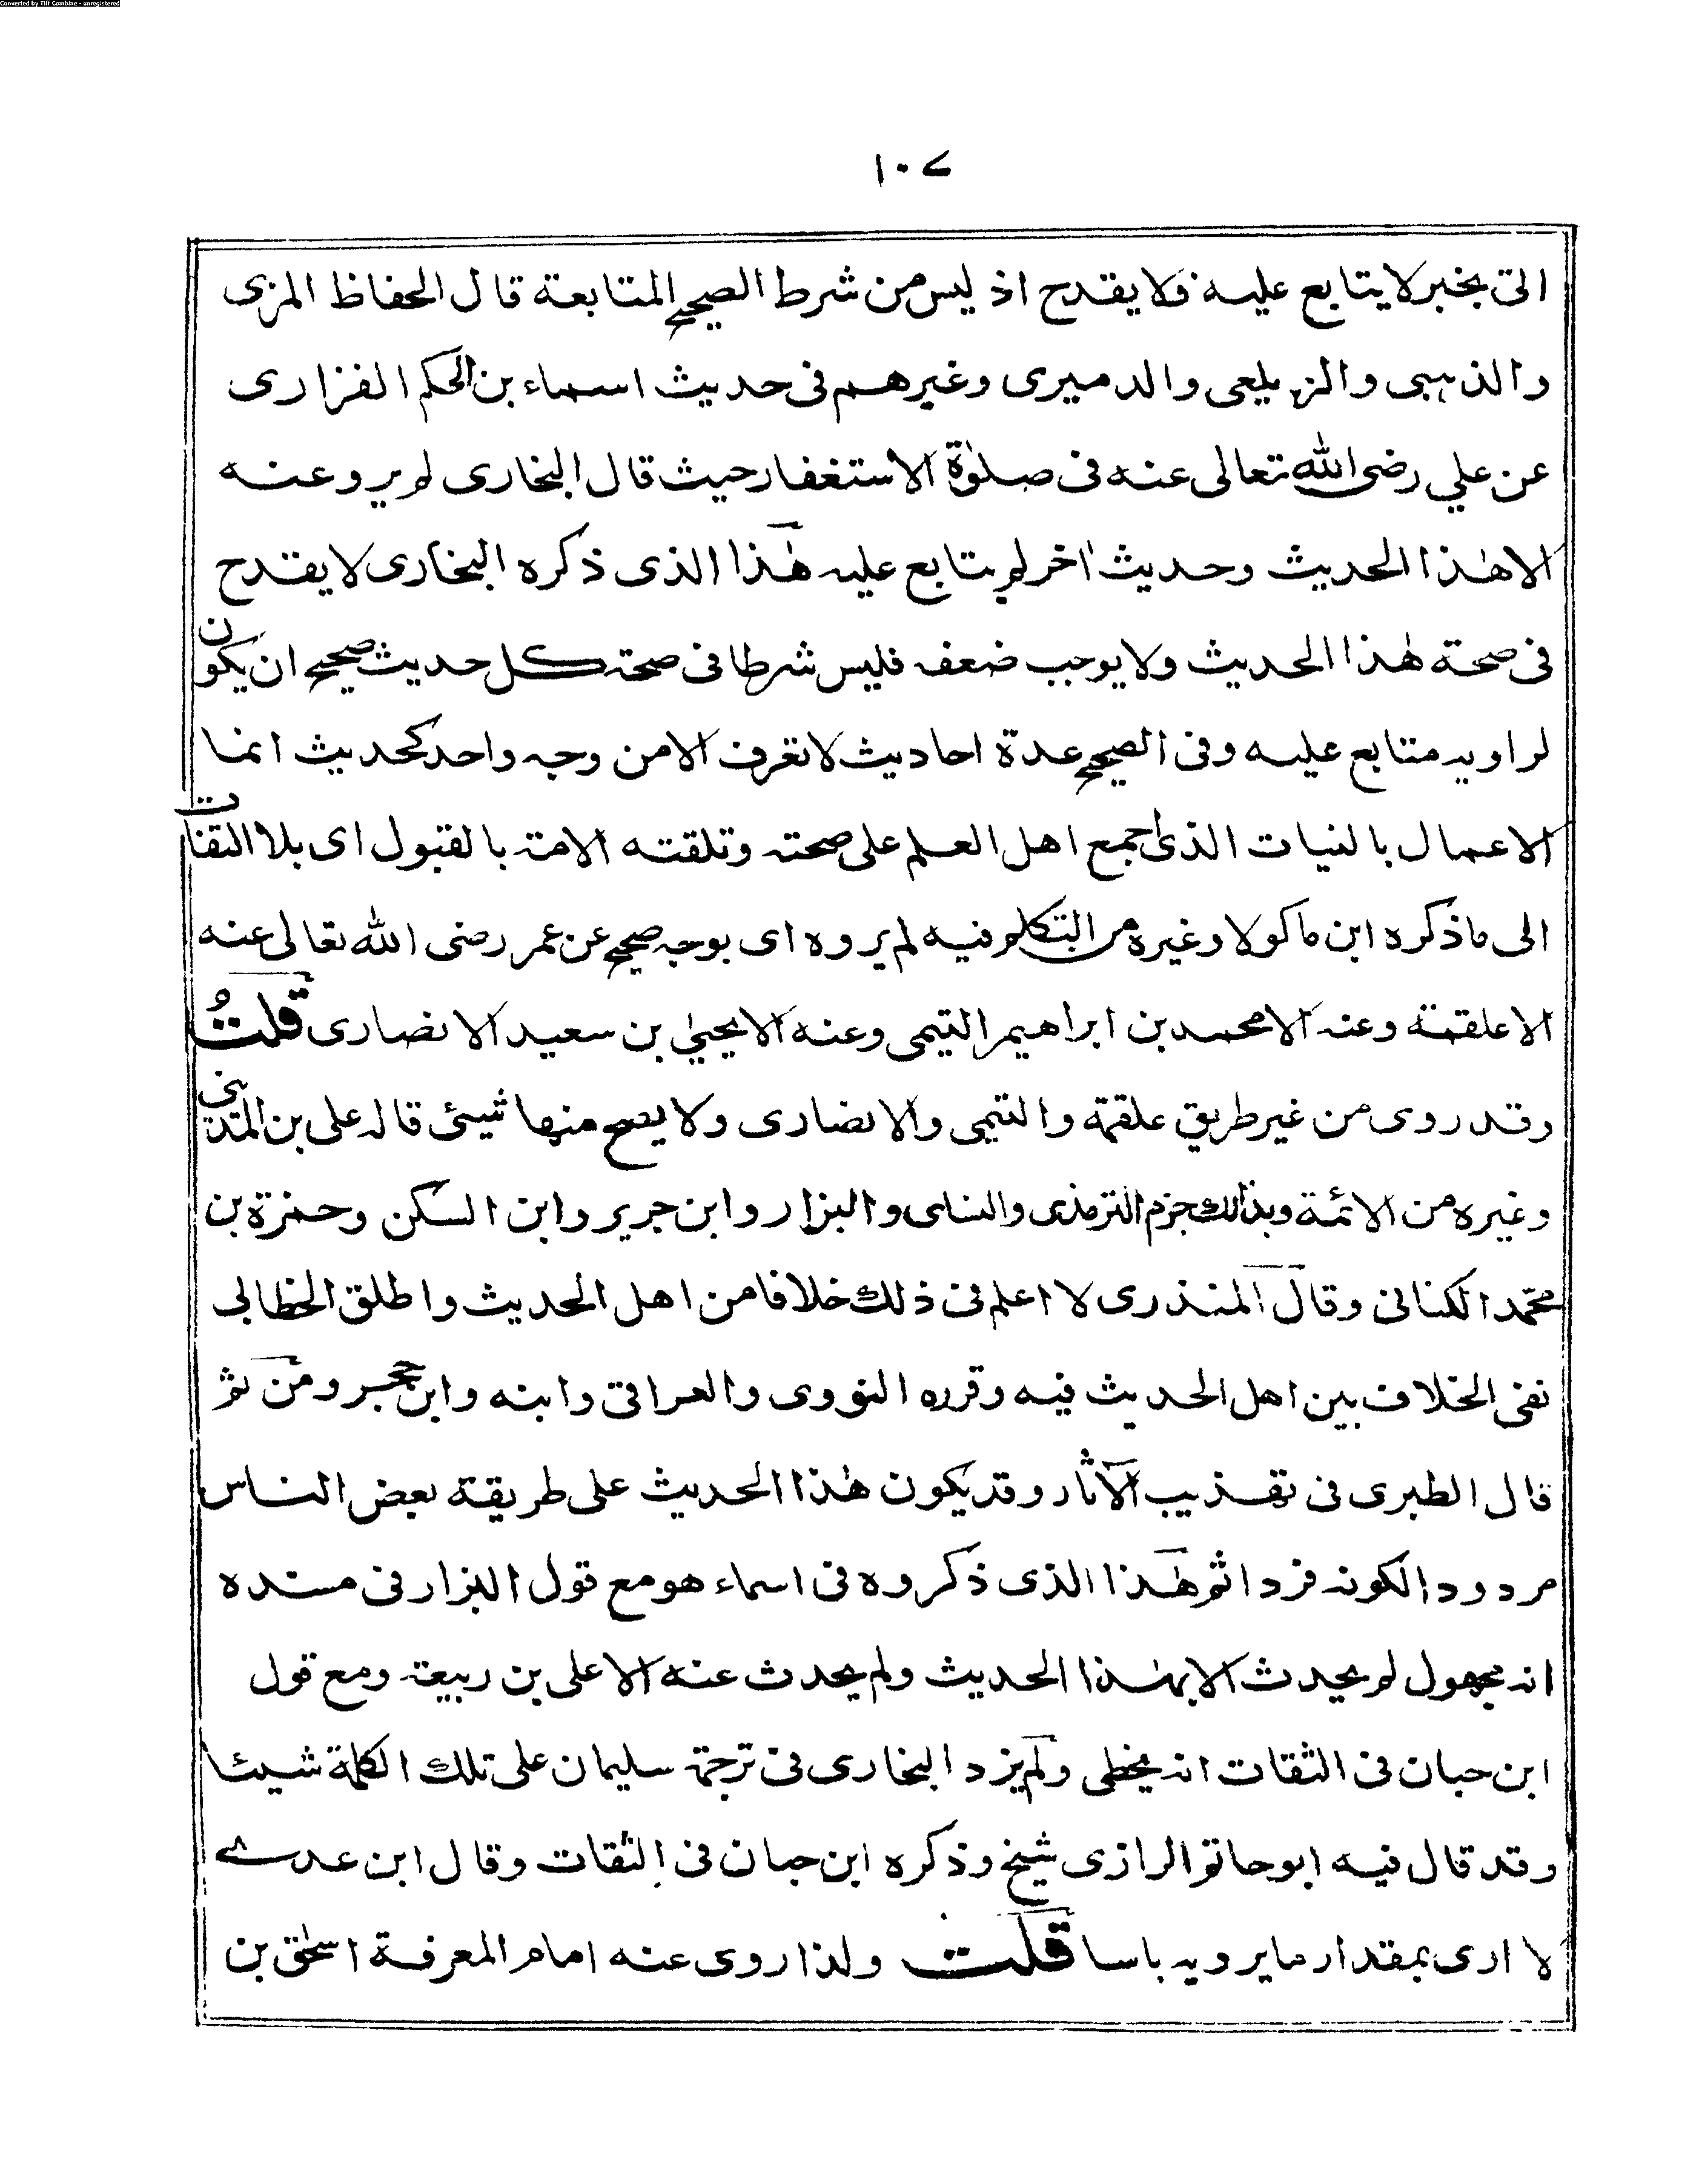 Converted by Tiff Combine - unregistered
١٠٧
التى بخبر لا يتابع عليه فلا يقدح اذ ليس من شرط الصحيح المتابعة قال الحفاظ المزى
والذهبى والزيلعى والدميرى وغيرهم فى حديث اسماء بن الحكم الفزارى
عن علي رضى الله تعالى عنه فى صلوٰة الاستغفار حيث قال البخارى لم يرو عنه
الا هٰذا الحديث وحديث اٰخر لم يتابع عليه هٰذا الذى ذكره البخارى لا يقدح
فى صحة هٰذا الحديث ولا يوجب ضعفه فليس شرطا فى صحة كل حديث صحيح ان يكون
لراويه متابع عليه وفى الصحيح عدة احاديث لا تعرف الا من وجه واحد كحديث انما
الاعمال بالنيات الذى اجمع اهل العلم على صحته وتلقته الامة بالقبول اى بلا التفات
الى ما ذكره ابن ماكولا وغيره من التكلم فيه لم يروه اى بوجه صحيح عن عمر رضى الله تعالى عنه
الا علقمة وعنه الا محمد بن ابراهيم التيمى وعنه الا يحيىٰ بن سعيد الانصارى قلتُ
وقد روى من غير طريق علقمة والتيمى والانصارى ولا يصح منها شيئ قاله على بن المدينى
وغيره من الائمة وبذالك جزم الترمذى والنساى والبزار وابن جرير وابن السكن وحمزة بن
محمد الكنانى وقال المنذرى لا اعلم فى ذلك خلافا من اهل الحديث واطلق الخطابى
نفى الخلاف بين اهل الحديث فيه وقرره النووى والعراقى وابنه وابن حجر ومن ثم
قال الطبرى فى تهذيب الآثار وقد يكون هٰذا الحديث على طريقة بعض الناس
مردودا لكونه فردا ثم هٰذا الذى ذكروه فى اسماء هو مع قول البزار فى مسنده
انه مجهول لم يحدث الا بهٰذا الحديث ولم يحدث عنه الا على بن ربيعة ومع قول
ابن حبان فى الثقات انه يخطى ولم يزد البخارى فى ترجمة سليمان على تلك الكلمة شيئا
وقد قال فيه ابو حاتم الرازى شيخ وذكره ابن حبان فى الثقات وقال ابن عدے
لا ارى بمقدار ما يرويه باسا قلت ولذا روى عنه امام المعرفة اسحٰق بن